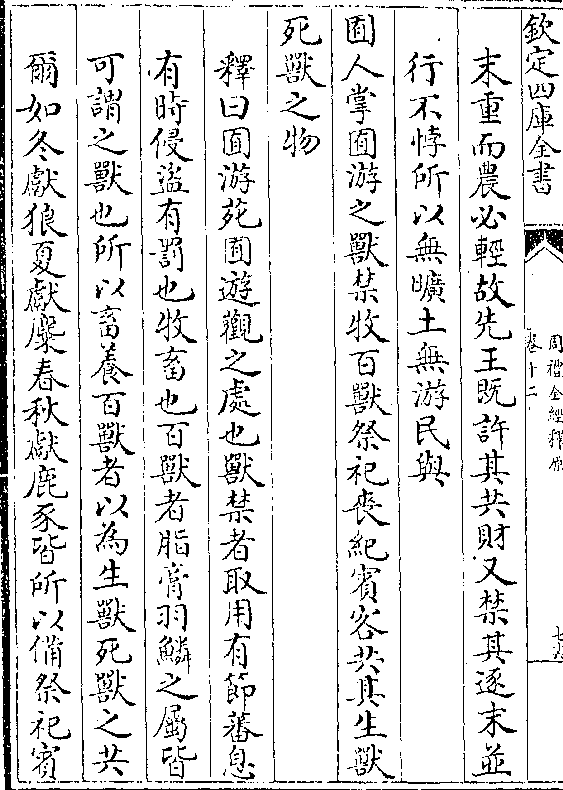 欽定四庫全書
周禮全經釋原
卷十二
末重而農必輕故先王既許其共財又禁其逐末並
行不悖所以無曠土無游民與
囿人掌囿游之獸禁牧百獸祭祀喪紀賓客共其生獸
死獸之物
釋曰囿游苑囿遊觀之處也獸禁者取用有節蕃息
有時侵盜有罰也牧畜也百獸者脂膏羽鱗之屬皆
可謂之獸也所以畜養百獸者以為生獸死獸之共
爾如冬獻狼夏獻麋春秋獻鹿豕皆所以備祭祀賓